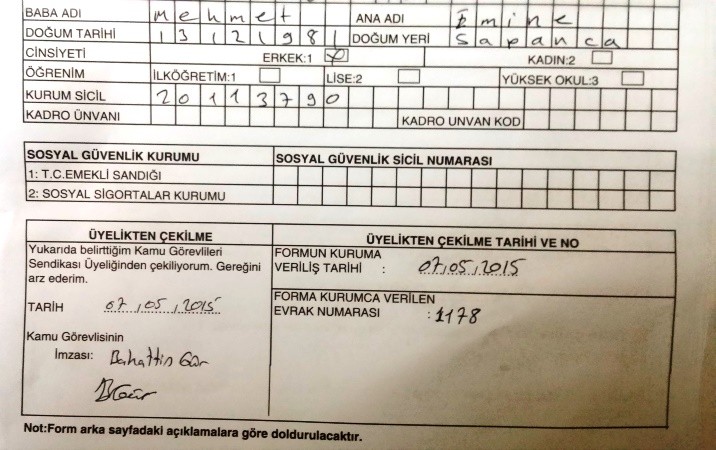 BABA ADI Mehmet ANA ADI Emine
DOĞUM TARİHİ 13121981 DOĞUM YERİ Sapanca
CİNSİYETİ ERKEK:1 X KADIN:2
ÖĞRENİM İLKÖĞRETİM:1 LİSE:2 YÜKSEK OKUL:3
KURUM SİCİL 20113790
KADRO ÜNVANI KADRO UNVAN KOD
SOSYAL GÜVENLİK KURUMU SOSYAL GÜVENLİK SİCİL NUMARASI
1: T.C.EMEKLİ SANDIĞI
2: SOSYAL SİGORTALAR KURUMU
ÜYELİKTEN ÇEKİLME
Yukarıda belirttiğim Kamu Görevlileri
Sendikası Üyeliğinden çekiliyorum. Gereğini
arz ederim.
TARİH 07.05.2015
Kamu Görevlisinin
İmzası: Bahattin Gür
BGür
ÜYELİKTEN ÇEKİLME TARİHİ VE NO
FORMUN KURUMA
VERİLİŞ TARİHİ : 07.05.2015
FORMA KURUMCA VERİLEN
EVRAK NUMARASI : 1178
Not:Form arka sayfadaki açıklamalara göre doldurulacaktır.